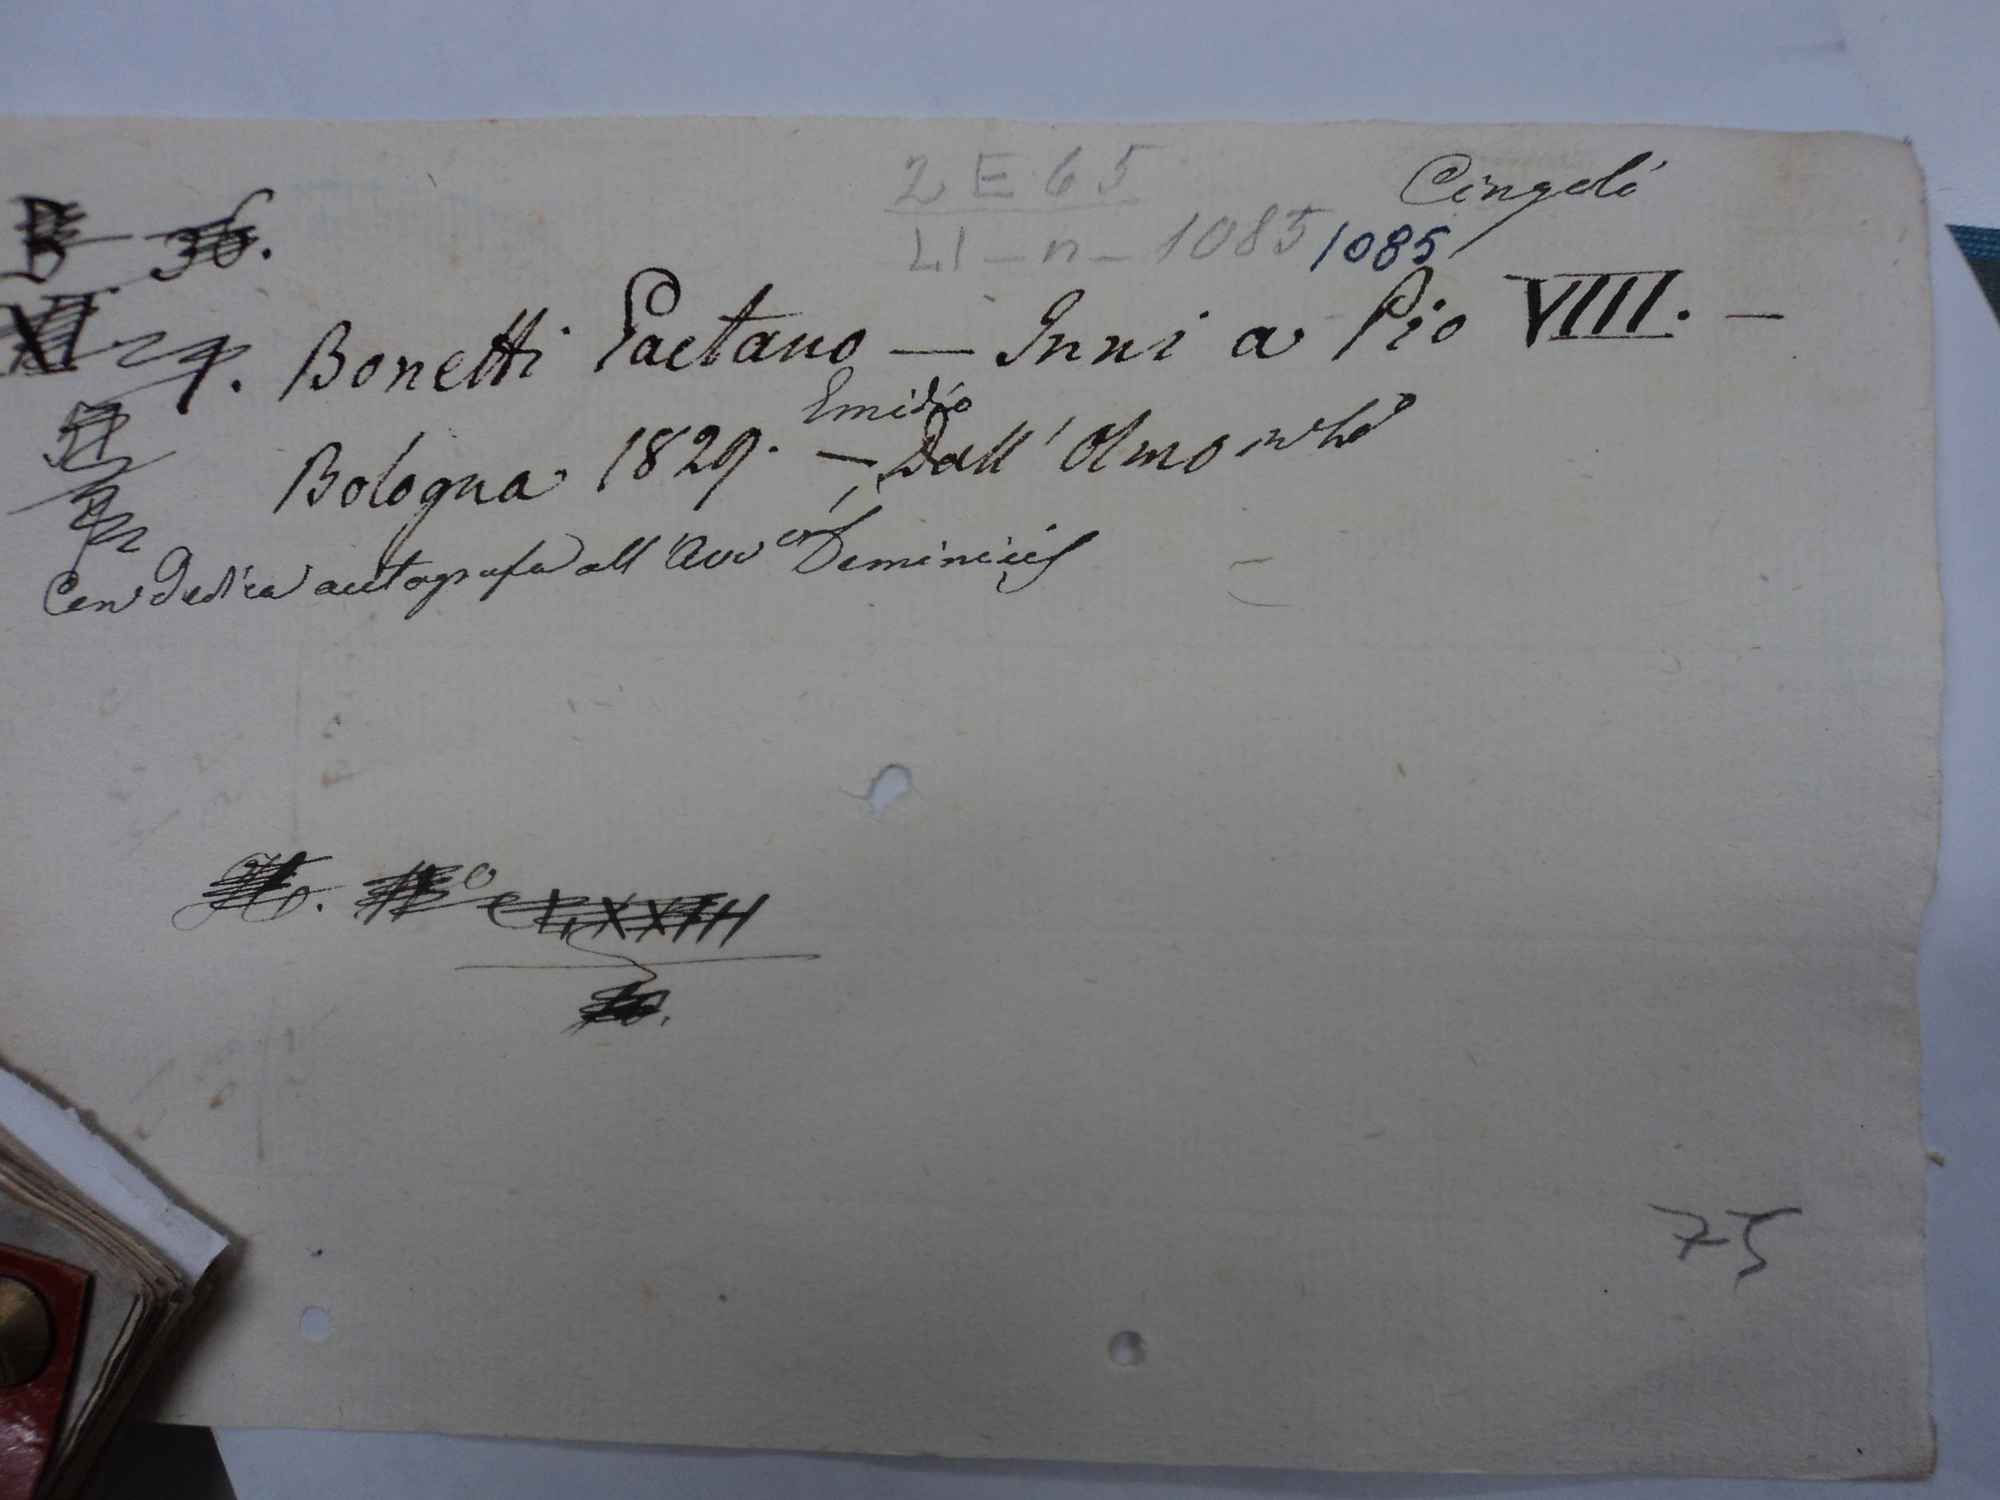 2 E 65
Cingoli
LI - n - 1085 1085
B 36.
XI
Bonetti Gaetano — Inni a Pio VIII. —
Emidio
Bologna 1829. — Dall' Olmo
Con dedica autografa all' Avv Deminicis
LXXIII
75